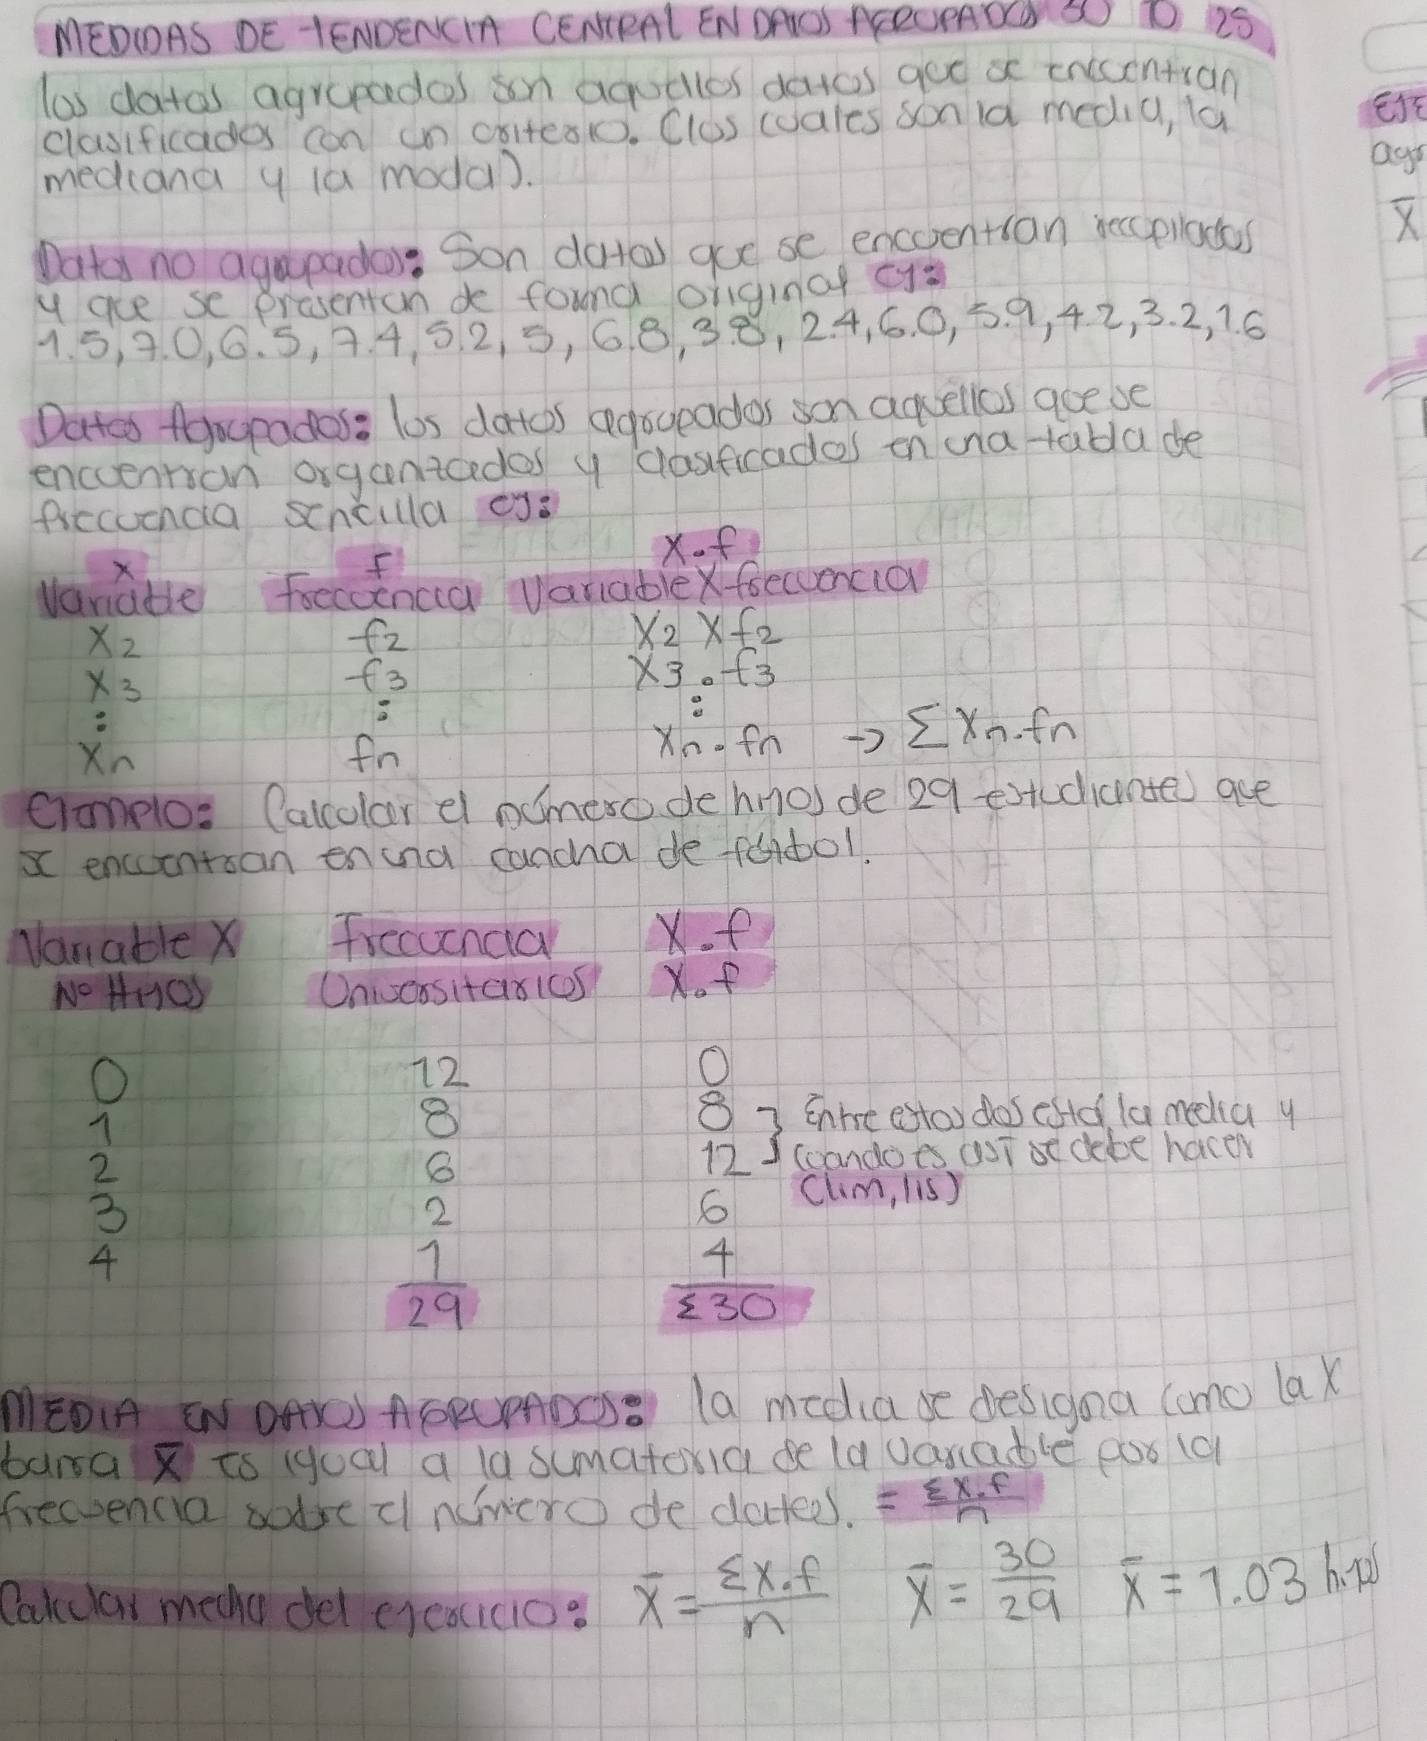 MEDIDAS DE TENDENCIA CENTRAL EN DATOS AGRUPADOS 30 10 25
los datos agrupados son aquellos datos que se encuentran
clasificados con un criterio. (los cuales son la media, la
mediana y la moda).
Datos no agrupados: Son datos que se encuentran recopilados
y que se presentan de forma original ej:
1.5, 7.0, 6.5, 7.4, 5.2, 5, 6.8, 3.8, 2.4, 6.0, 5.9, 4.2, 3.2, 1.6
Datos Agrupados: los datos agrupados son aquellos que se
encuentran organizados y clasificados en una tabla de
frecuencia sencilla ej:
x f x.f
Variable frecuencia Variable X frecuencia
X2 f2 X2 X f2
X3 f3 X3 . f3
: : :
Xn fn Xn . fn → Σ Xn.fn
Ejemplo: Calcular el número de hijos de 29 estudiantes que
se encuentran en una cancha de fútbol.
Variable X frecuencia X.f
Nº Hijos Universitarios X.f
0 12 0
1 8 8 } Entre estos dos está la media y
2 6 12 cuando es así se debe hacer
(lim, lis)
3 2 6
4 1 4
29 Σ30
MEDIA EN DATOS AGRUPADOS: la media se designa como la X
barra X̄ es igual a la sumatoria de la variable por la
frecuencia sobre el número de datos. = Σx.f/n
Calcular media del ejercicio: X̄ = Σx.f/n X̄ = 30/29 X̄ = 1.03 hijos
EJE
agr
X̄